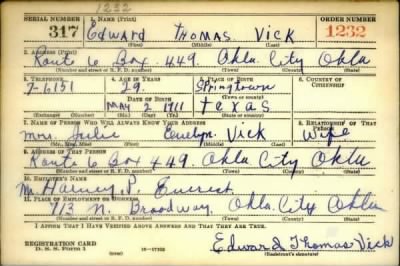 1232
SERIAL NUMBER 1. NAME (Print) ORDER NUMBER
317 Edward Thomas Vick 1232
(First) (Middle) (Last)
2. ADDRESS (Print)
Route 6 Box 449. Okla. City Okla
(Number and street or R. F. D. number) (Town) (County) (State)
3. TELEPHONE 4. AGE IN YEARS 5. PLACE OF BIRTH 6. COUNTRY OF CITIZENSHIP
7-6151 29. Springtown
DATE OF BIRTH (Town or county)
May 2 1911 Texas
(Exchange) (Number) (Mo.) (Day) (Yr.) (State or country)
7. NAME OF PERSON WHO WILL ALWAYS KNOW YOUR ADDRESS 8. RELATIONSHIP OF THAT PERSON
Mrs. Julie Evelyn. Vick Wife
(Mr., Mrs., Miss) (First) (Middle) (Last)
9. ADDRESS OF THAT PERSON
Route 6 Box 449. Okla City Okla
(Number and street or R. F. D. number) (Town) (County) (State)
10. EMPLOYER'S NAME
Mr. Harvey. P. Everest
11. PLACE OF EMPLOYMENT OR BUSINESS
713 N. Broadway. Okla. City Okla
(Number and street or R. F. D. number) (Town) (County) (State)
I AFFIRM THAT I HAVE VERIFIED ABOVE ANSWERS AND THAT THEY ARE TRUE.
REGISTRATION CARD
D. S. S. Form 1 16-17105 Edward Thomas Vick
(Registrant's signature)